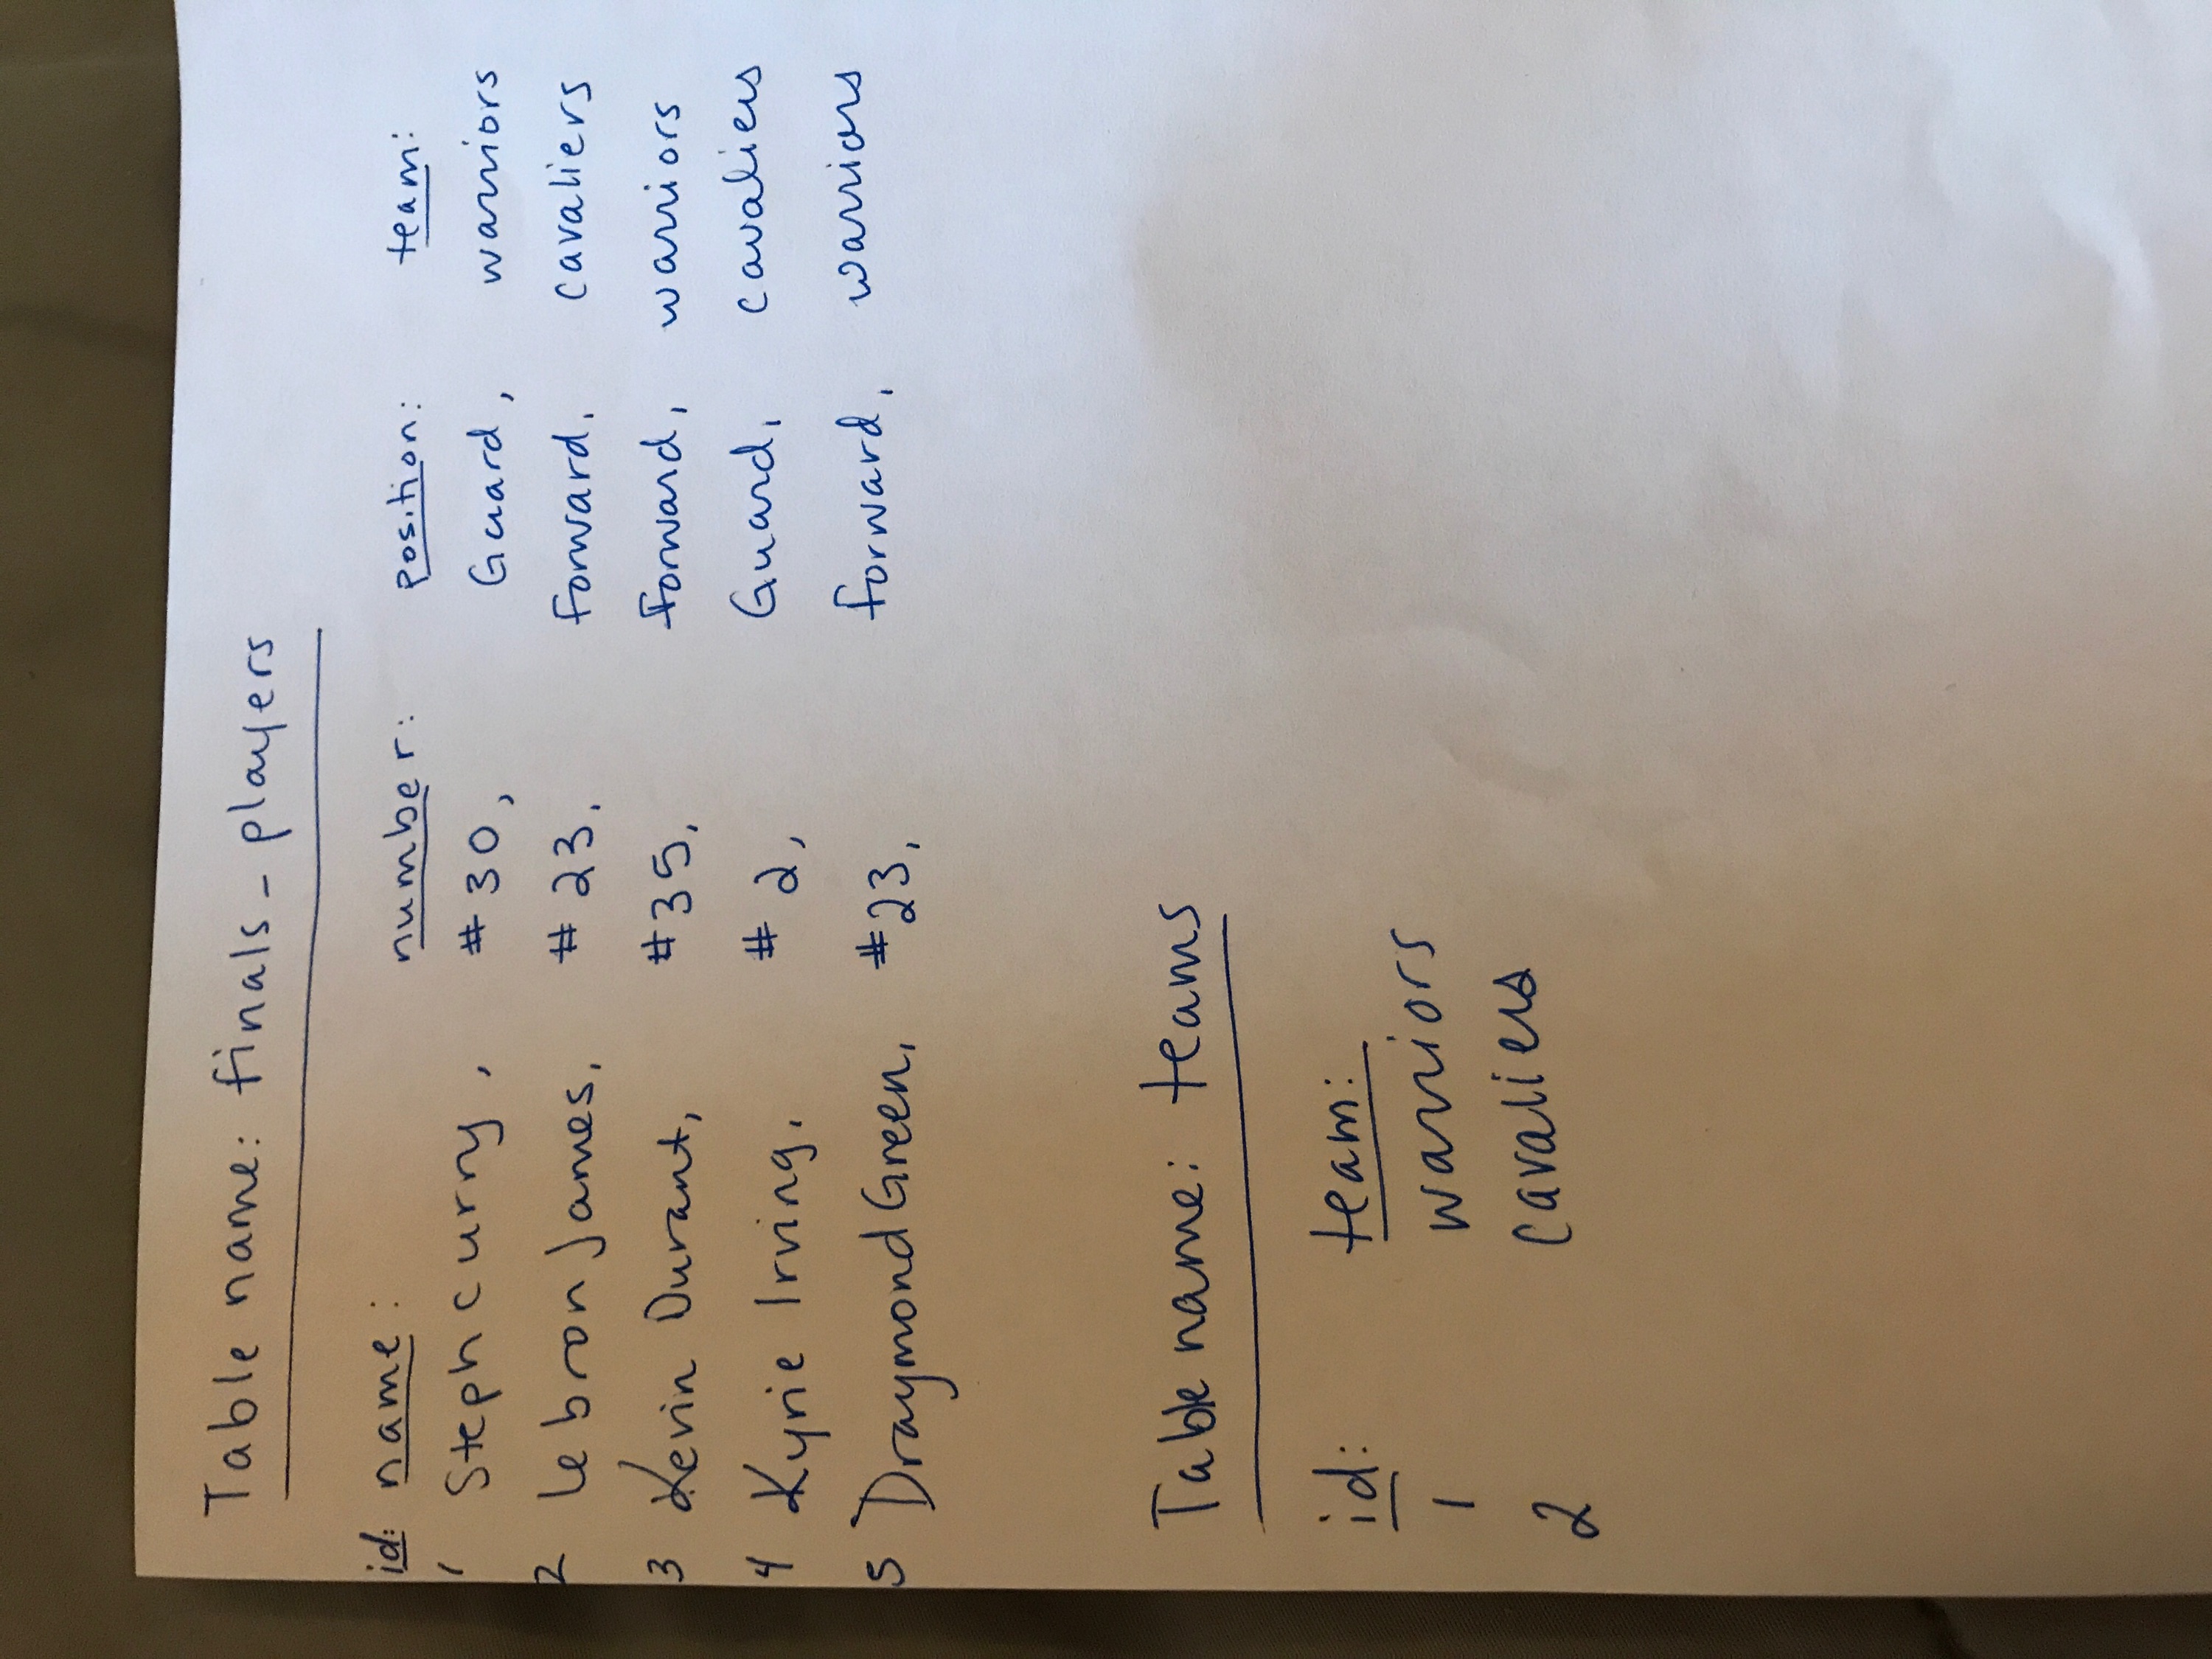 Table name: finals_players
id: name: number: position: team:
1 Steph Curry, #30, Guard, warriors
2 Lebron James, #23, forward, cavaliers
3 Kevin Durant, #35, forward, warriors
4 Kyrie Irving, #2, Guard, cavaliers
5 Draymond Green, #23, forward, warriors
Table name: teams
id: team:
1 warriors
2 cavaliers